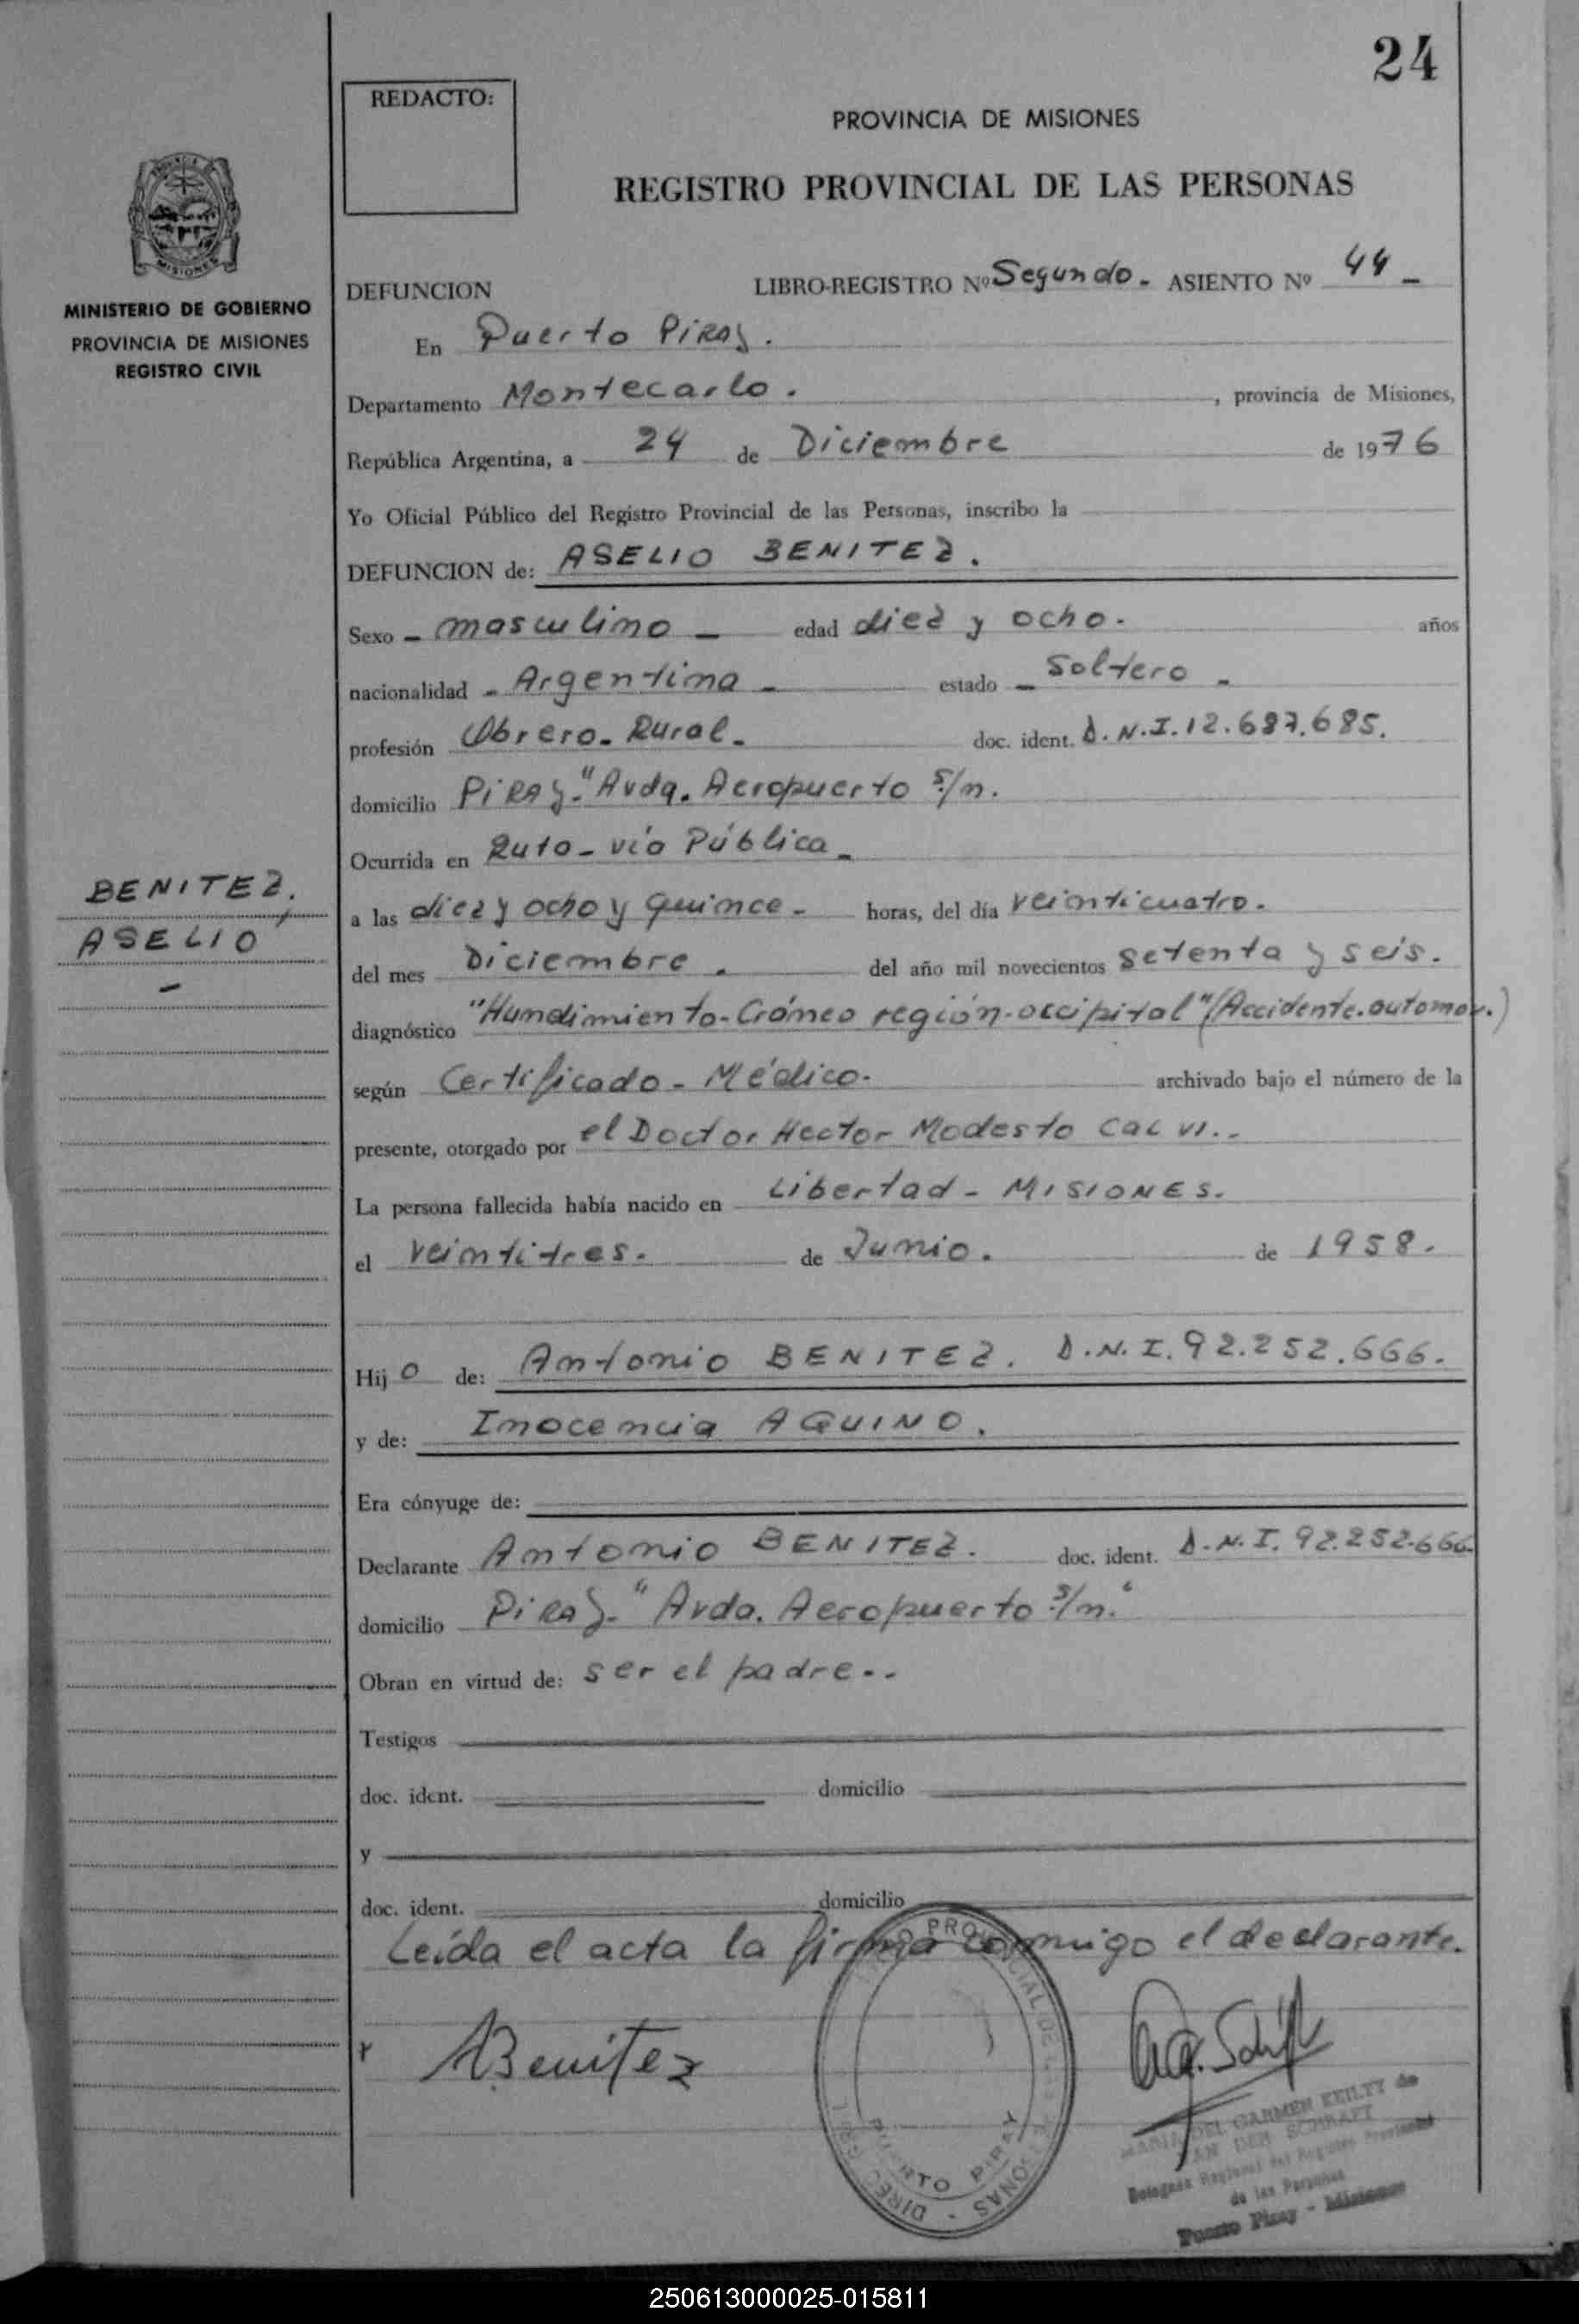 24
REDACTO:
PROVINCIA DE MISIONES
REGISTRO PROVINCIAL DE LAS PERSONAS
MISIONES
MINISTERIO DE GOBIERNO
PROVINCIA DE MISIONES
REGISTRO CIVIL
DEFUNCION LIBRO-REGISTRO Nº Segundo - ASIENTO Nº 44 -
En Puerto PiRay.
Departamento Montecarlo. , provincia de Misiones,
República Argentina, a 24 de Diciembre de 1976
Yo Oficial Público del Registro Provincial de las Personas, inscribo la
DEFUNCION de: ASELIO BENITEZ.
Sexo - masculino - edad diez y ocho. años
nacionalidad - Argentina - estado - Soltero -
profesión Obrero - Rural - doc. ident. D.N.I. 12.687.685.
domicilio PiRAy - "Avda. Aeropuerto s/n.
Ocurrida en Ruta - vía Pública -
BENITEZ,
ASELIO
-
a las diez y ocho y quince - horas, del día veinticuatro.
del mes Diciembre . del año mil novecientos setenta y seis.
diagnóstico "Hundimiento-Cráneo región-occipital" (Accidente.automov.)
según Certificado - Médico. archivado bajo el número de la
presente, otorgado por el Doctor Hector Modesto CALVI..
La persona fallecida había nacido en Libertad - MISIONES.
el veintitres. de Junio. de 1958.
Hij o de: Antonio BENITEZ. D.N.I. 92.252.666.
y de: Inocencia AQUINO.
Era cónyuge de:
Declarante Antonio BENITEZ. doc. ident. D.N.I. 92.252.666
domicilio PiRAy - "Avda. Aeropuerto s/n."
Obran en virtud de: ser el padre..
Testigos
doc. ident. domicilio
y
doc. ident. domicilio
Leída el acta la firma conmigo el declarante.
ABenitez
PUERTO PIRAY
MARIA DEL CARMEN KEILTY de
VAN DER SCHRAFT
Delegada Regional del Registro Provincial
de las Personas
Puerto Piray - Misiones
250613000025-015811